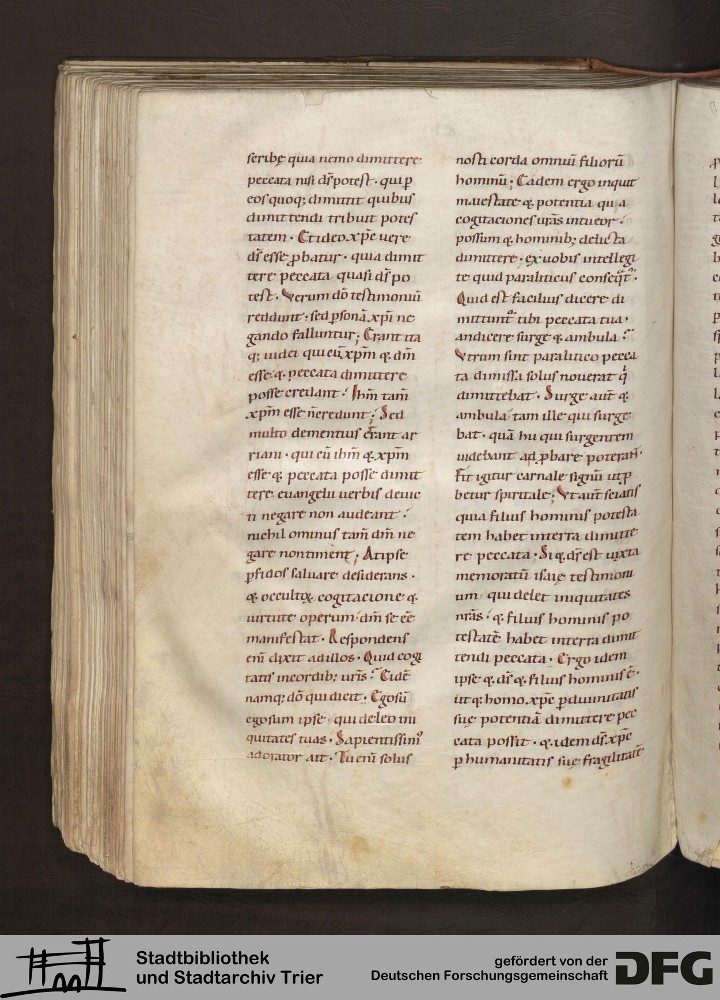 scribę quia nemo dimittere
peccata nisi d̅s potest · qui ꝑ
eos quoq; dimittit quibus
dimittendi tribuit potes
tatem · Et ideo xp̅c uere
d̅s esse ꝓbatur · quia dimit
tere peccata quasi d̅s po
test · Verum dō testimoniū
reddunt · sed ꝑsonā xp̅i ne
gando falluntur; Erant ita
q; iudei qui eū xp̅m & d̅m
esse & peccata dimittere
posse credant · Ihm̅ tam̅
xp̅m esse n̅ credunt; Sed
multo dementius errant ar
riani · qui cū ihm̅ & xp̅m
esse & peccata posse dimit
tere euangelii uerbis deuic
ti negare non audeant ·
nichil ominus tam̅ d̅m ne
gare non timent; At ipse
ꝑfidos saluare desiderans ·
& occultoꝝ cogitacione &
uirtute operum d̅m se eē
manifestat · Respondens
eni̅ dixit ad illos · Quid cogi
tatis in cordib; uris̅ · Eidē
namq; dō qui dicit · Ego sū
ego sum ipse qui deleo ini
quitates tuas · Sapientissim'
adorator ait · Tu eni̅ solus
nosti corda omniū filiorū
hominū; Eadem ergo inquit
maiestate & potentia qua
cogitaciones ur̅as intueor ·
possum & hominib; delicta
dimittere · ex uobis intellegi
te quid paraliticus conseq̅t̅ ·
Quid est facilius dicere di
mittunt' tibi peccata tua ·
an dicere surge & ambula
Vtrum sint paralitico pecca
ta dimissa solus nouerat q̅
dimittebat · Surge aut̅ &
ambula tam ille qui surge
bat · quā hii qui surgentem
uidebant adꝓbare poterant ·
Fit igitur carnale signū ut ꝓ
betur spiritale; Vt aut̅ sciatis
quia filius hominis potesta
tem habet in terra dimitte
re peccata; Si & d̅s est iuxta
memoratū isaię testimoni
um qui delet iniquitates
nr̅as · & filius hominis po
testatē habet in terra dimit
tendi peccata · Ergo idem
ipse & d̅s & filius hominis ē ·
ut & homo xp̅c ꝑ diuinitatis
suę potentiā dimittere pec
cata possit · & idem d̅s xp̅c
ꝑ humanitatis suę fragilitatē
Stadtbibliothek
und Stadtarchiv Trier
gefördert von der
Deutschen Forschungsgemeinschaft
DFG